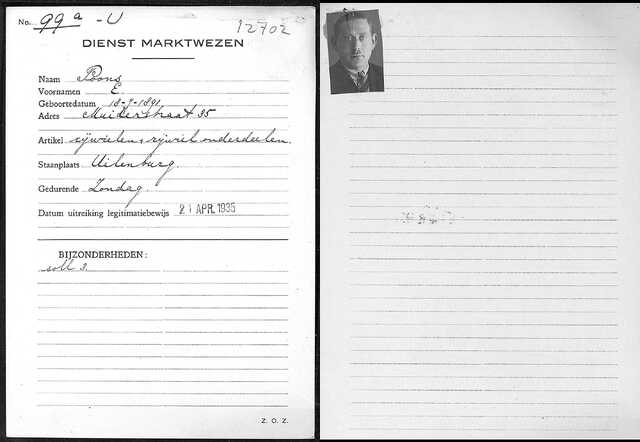 No. 99 a - U
12702
DIENST MARKTWEZEN
Naam Poons
Voornamen E.
Geboortedatum 18-9-1891
Adres Muiderstraat 35
Artikel rijwielen, rijwiel onderdeelen.
Staanplaats Uilenburg.
Gedurende Zondag.
Datum uitreiking legitimatiebewijs 21 APR. 1935
BIJZONDERHEDEN:
soll 3.
Z. O. Z.